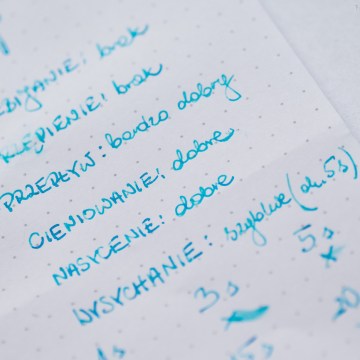 BIJANIE: brak
KLEPIENIE: brak
PRZEPŁYW: bardzo dobry
CIENIOWANIE: dobre
NASYCENIE: dobre
WYSYCHANIE: szybkie (ok. 5s)
3s 5s
1s